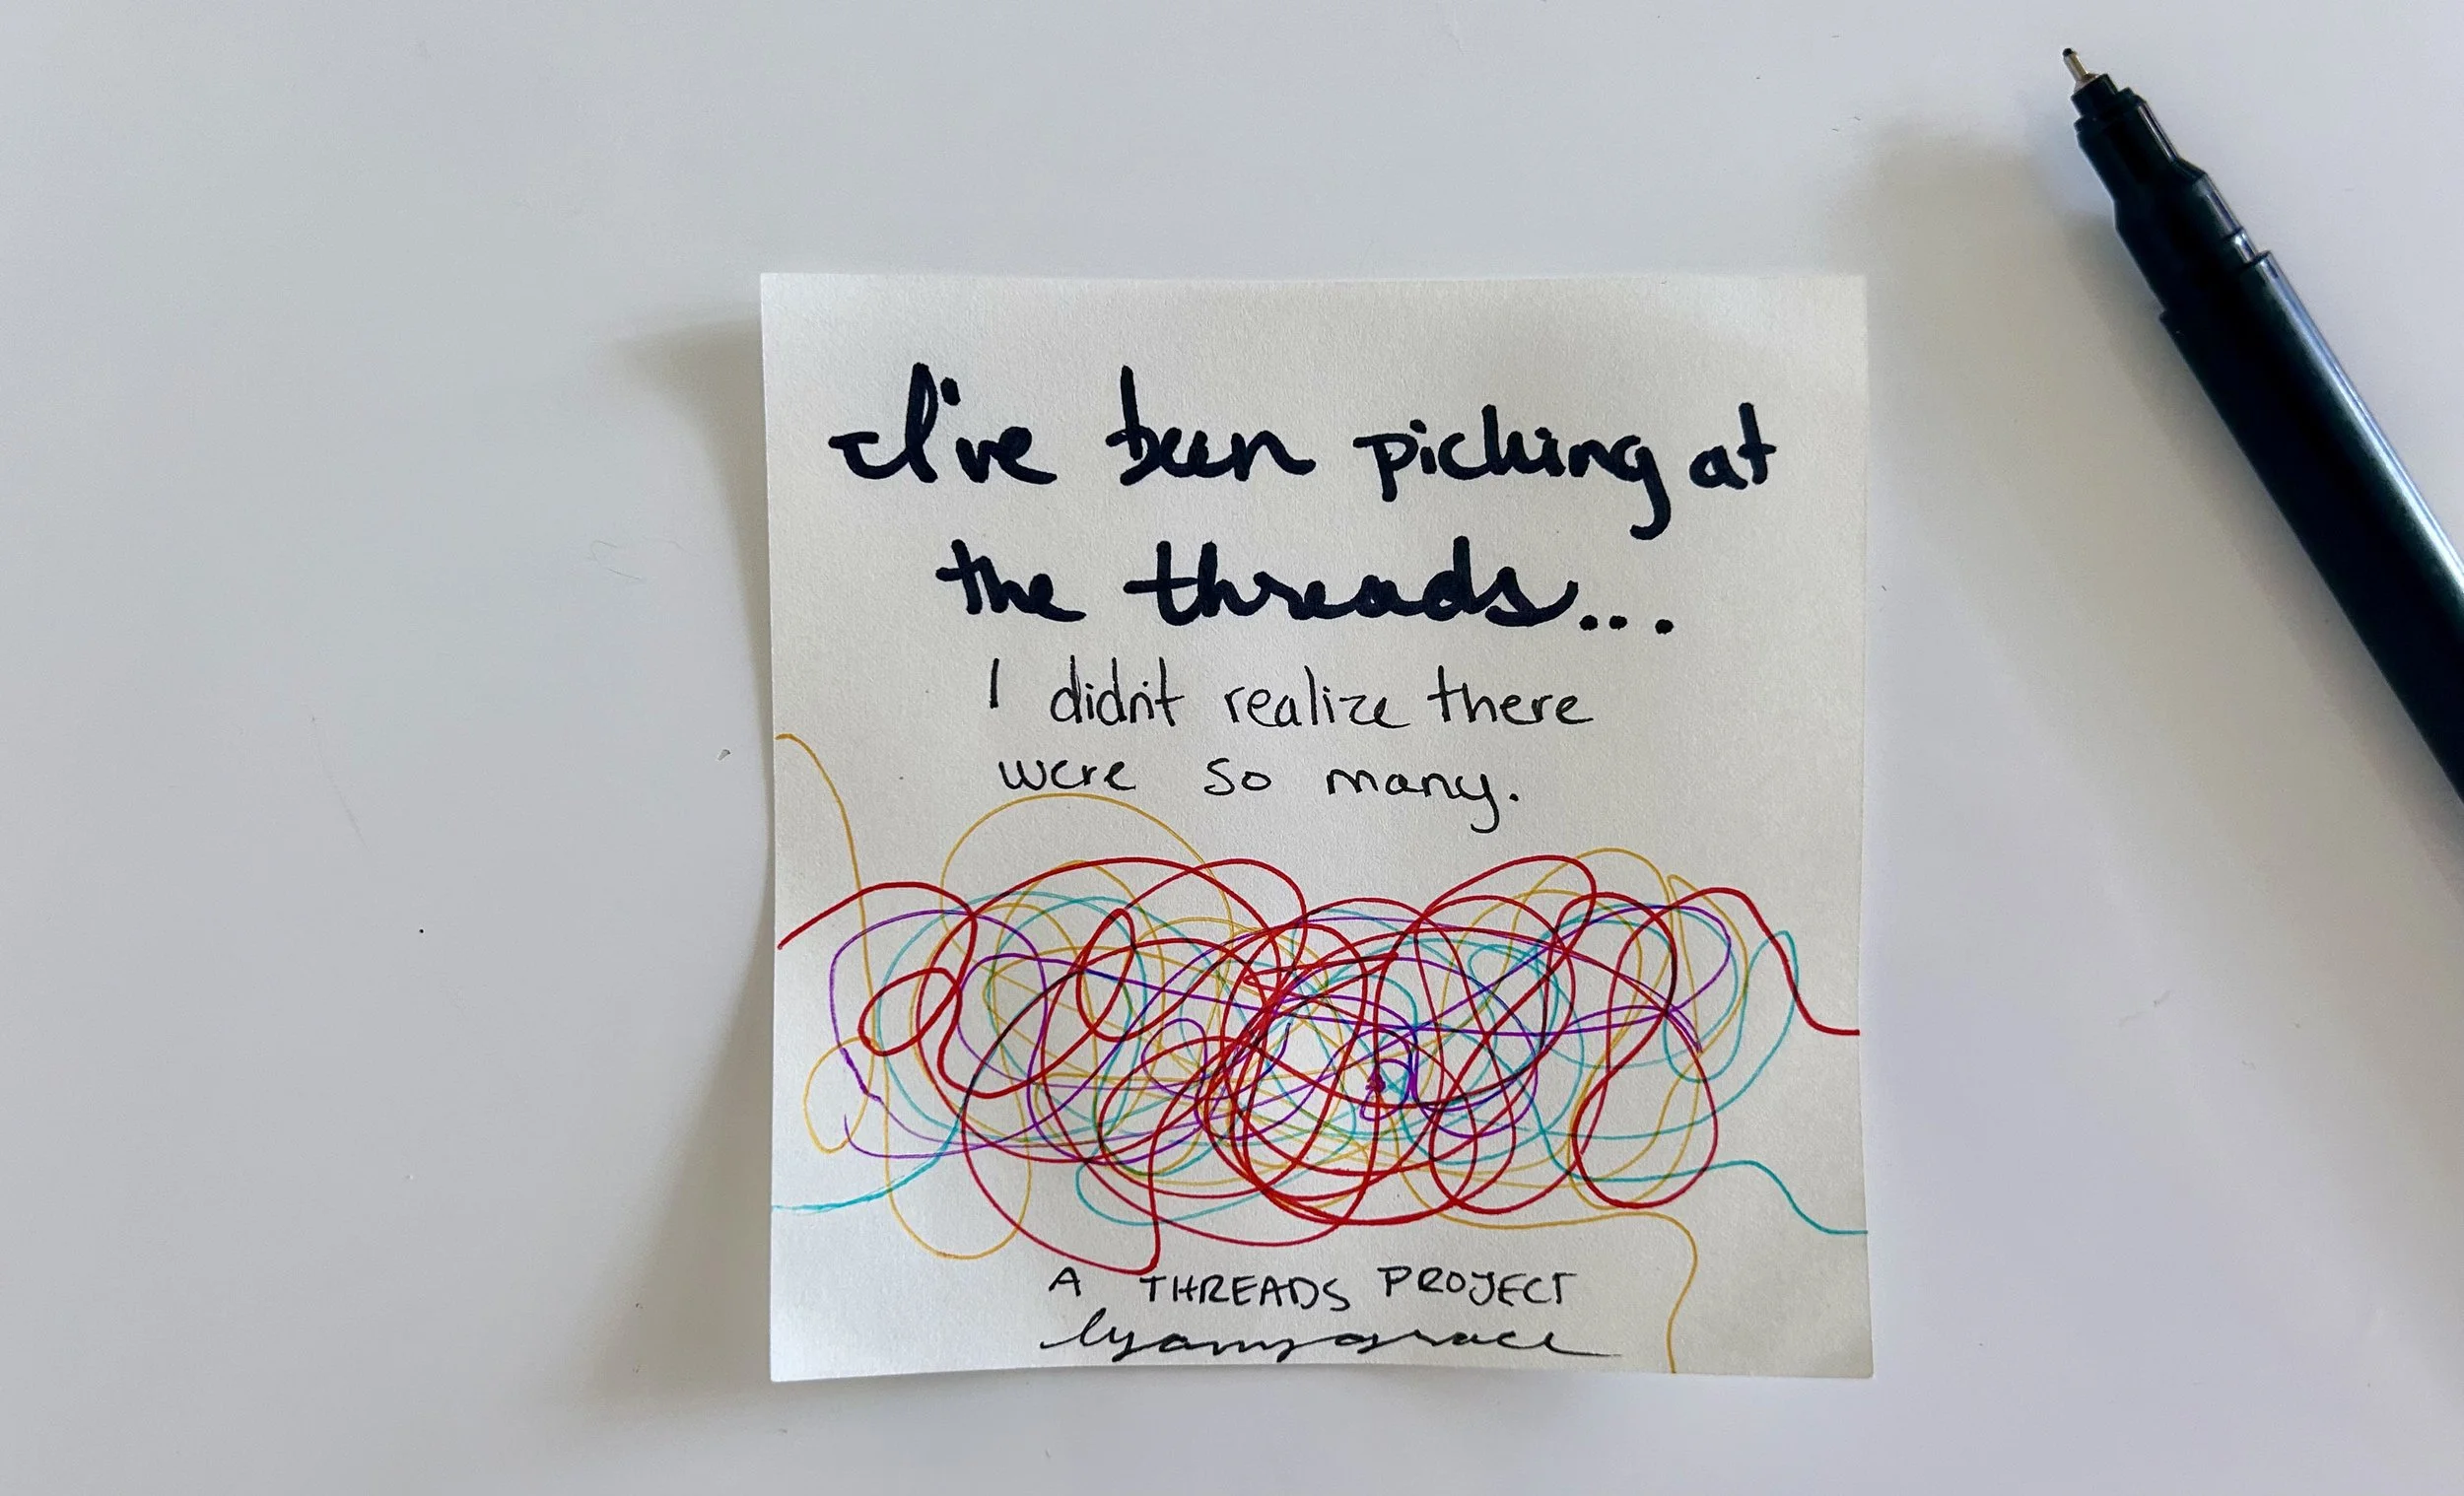 I've been picking at
the threads...
I didn't realize there
were so many.
A THREADS PROJECT